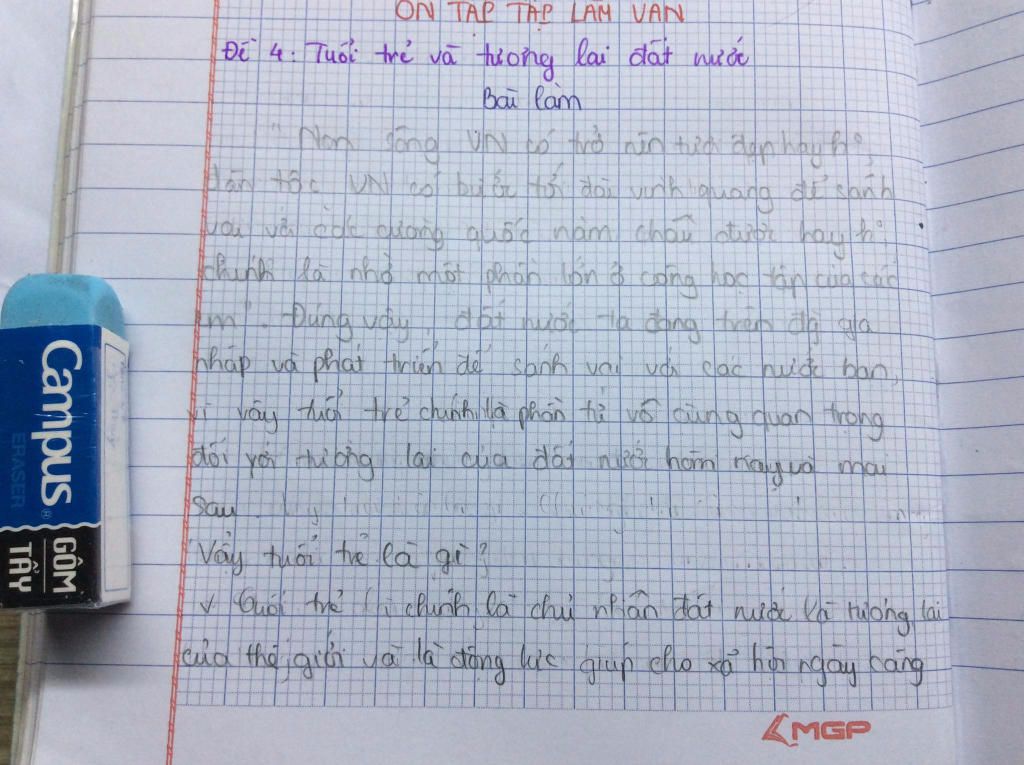 ÔN TẬP TẬP LÀM VĂN
Đề 4: Tuổi trẻ và tương lai đất nước
Bài làm
"Non sông VN có trở nên tươi đẹp hay ko,
dân tộc VN có bước tới đài vinh quang để sánh
vai với các cường quốc năm châu được hay ko,
chính là nhờ một phần lớn ở công học tập của các
em". Đúng vậy, đất nước ta đang trên đà gia
nhập và phát triển để sánh vai với các nước bạn,
vì vậy tuổi trẻ chính là phần tử vô cùng quan trọng
đối với tương lai của đất nước hôm nay và mai
sau.
Vậy tuổi trẻ là gì?
Tuổi trẻ chính là chủ nhân đất nước là tương lai
của thế giới và là động lực giúp cho xã hội ngày càng
MGP
Campus
ERASER
GÔM
TẨY